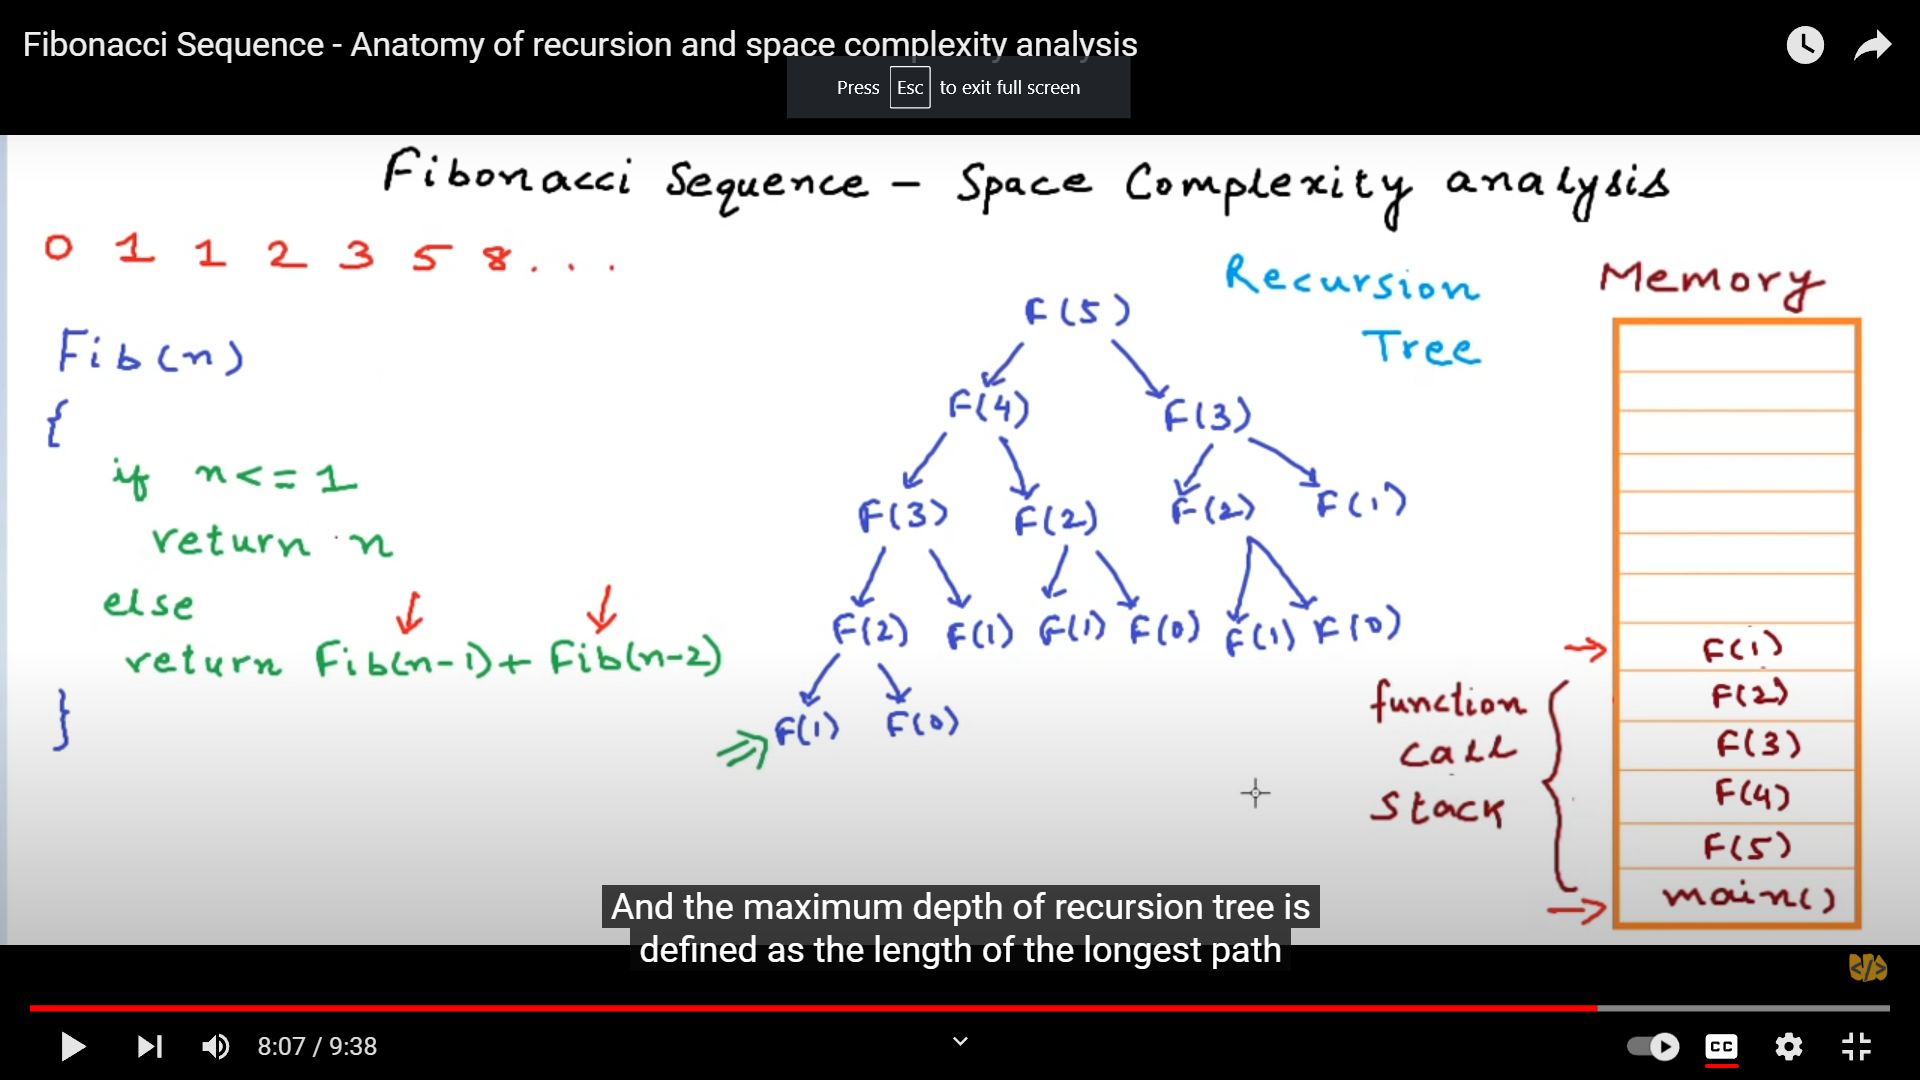 Fibonacci Sequence - Anatomy of recursion and space complexity analysis
Press Esc to exit full screen
Fibonacci Sequence - Space Complexity analysis
0 1 1 2 3 5 8 . . .
Fib(n)
{
if n<=1
return n
else
return Fib(n-1)+Fib(n-2)
}
Recursion
Tree
F(5)
F(4) F(3)
F(3) F(2) F(2) F(1)
F(2) F(1) F(1) F(0) F(1) F(0)
F(1) F(0)
Memory
F(1)
F(2)
F(3)
F(4)
F(5)
main()
function
call
stack
And the maximum depth of recursion tree is
defined as the length of the longest path
</>
8:07 / 9:38
CC